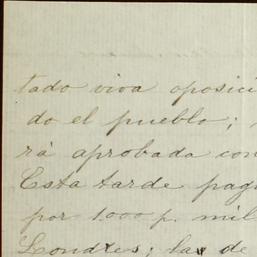 tado viva oposici
do el pueblo;
rá aprobada con
Esta tarde pag
por 1.000 p. mil
Londres; las de